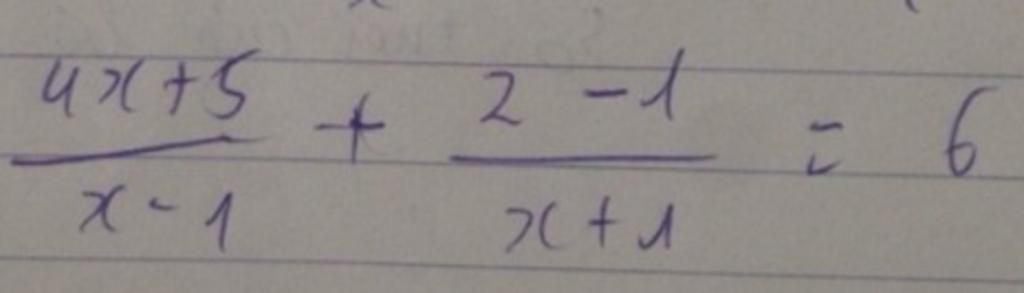 \frac{4x+5}{x-1} + \frac{2-1}{x+1} = 6